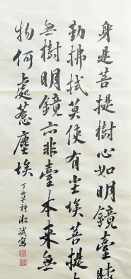 身是菩提樹心如明鏡臺時
勤拂拭莫使有尘埃菩提
無樹明鏡亦非臺本来無
物何處惹塵埃